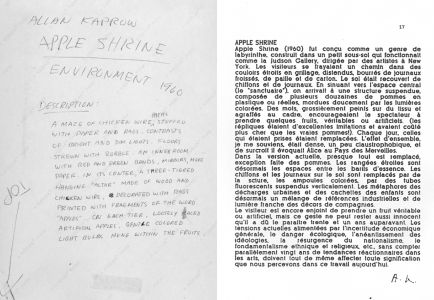 ALLAN KAPROW
APPLE SHRINE
ENVIRONMENT
1960
DESCRIPTION:
A MAZE OF CHICKEN WIRE, STUFFED
WITH PAPER AND RAGS. CONTRASTS
OF BRIGHT AND DIM LIGHTS. FLOOR
STREWN WITH RUBBLE. AN INNER ROOM
WITH RED AND GREEN BANDS, MIRRORS, MORE
PAPER. IN ITS CENTER, A THREE-TIERED
HANGING "ALTAR" MADE OF WOOD AND
CHICKEN WIRE, & DECORATED WITH RAGS
PRINTED WITH FRAGMENTS OF THE WORD
"APPLES". ON EACH TIER, LOOSELY
ARTIFICIAL APPLES. ORANGE COLORED
LIGHT BULBS HUNG WITHIN THE FRUITS.
17
APPLE SHRINE
Apple Shrine (1960) fut conçu comme un genre de
labyrinthe, construit dans un petit sous-sol qui fonctionnait
comme la Judson Gallery, dirigée par des artistes à New
York. Les visiteurs se frayaient un chemin dans des
couloirs étroits en grillage, distendus, bourrés de journaux
froissés, de paille et de carton. Le sol était recouvert de
chiffons et de journaux. En sinuant vers l'espace central
(le "sanctuaire"), on arrivait à une structure suspendue,
composée de plusieurs douzaines de pommes en
plastique ou réelles, mordues doucement par les lumières
colorées. Des mots, grossièrement peints sur du tissu et
agrafés au cadre, encourageaient le spectateur à
prendre quelques fruits, véritables ou artificiels. (les
répliques étaient d'excellentes imitations et avaient coûté
plus cher que les vraies pommes!). Chaque jour, celles
qui étaient prises étaient remplacées. L'effet d'ensemble,
je me souviens, était dense, un peu claustrophobique, et
de surcroît il évoquait Alice au Pays des Merveilles.
Dans la version actuelle, presque tout est remplacé,
exception faite des pommes. Les rangées étroites sont
désormais les espaces entre les barils d'essence. Les
chiffons et les journaux sur le sol sont remplacés par de
la sciure, les ampoules colorées, par des tubes
fluorescents suspendus verticalement. Les métaphores des
décharges urbaines et des cachettes des enfants sont
désormais un mélange de références industrielles et de
lumière franche des décors de compagnies.
Le visiteur est encore enjoint de prendre un fruit véritable
ou artificiel, mais ce geste ne peut rester aussi innocent
qu'il a dû le paraître trente et un ans auparavant. Les
tensions actuelles alimentées par l'incertitude économique
générale, le danger écologique, l'anéantissement des
idéologies, la résurgence du nationalisme, le
fondamentalisme ethnique et religieux, etc, sans compter
parallèlement vingt ans de tendances réactionnaires dans
les arts, doivent tout de même affecter toute signification
que nous percevons dans ce travail aujourd'hui.
A. K.